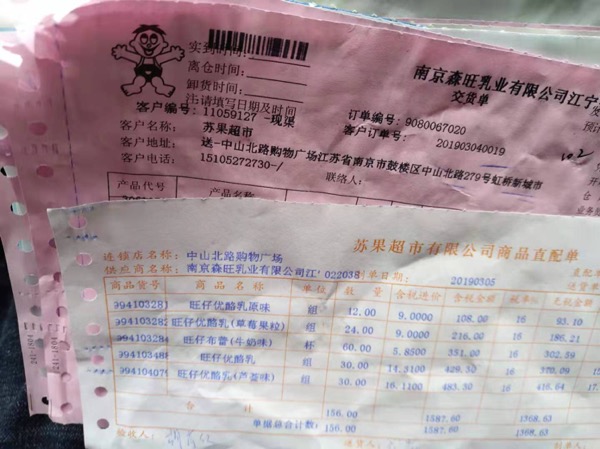 实到时间:
离仓时间:
卸货时间:
注:请填写日期及时间
南京森旺乳业有限公司江宁
交货单
客户编号: 11059127 -现渠
订单编号: 9080067020
客户名称: 苏果超市
客户订单号: 201903040019
客户地址: 送-中山北路购物广场江苏省南京市鼓楼区中山北路279号虹桥新城市
客户电话: 15105272730-/
联络人:
产品代号
产品名称
苏果超市有限公司商品直配单
连锁店名称: 中山北路购物广场
供应商名称: 南京森旺乳业有限公司江' 022038
制单日期: 20190305
商品货号 商品名称 单位 数量 含税进价 含税金额 税率% 无税金额
99410328 旺仔优酪乳原味 组 12.00 9.0000 108.00 16 93.10
99410328 旺仔优酪乳(草莓果粒) 组 24.00 9.0000 216.00 16 186.21
99410328 旺仔布蕾(牛奶味) 杯 60.00 5.8500 351.00 16 302.59
99410348 旺仔优酪乳 组 30.00 14.3100 429.30 16 370.09
99410407 旺仔优酪乳(芦荟味) 组 30.00 16.1100 483.30 16 416.64
合计 156.00 1587.60 1368.63
单据总合计数: 156.00 1587.60 1368.63
验收人:
送货人